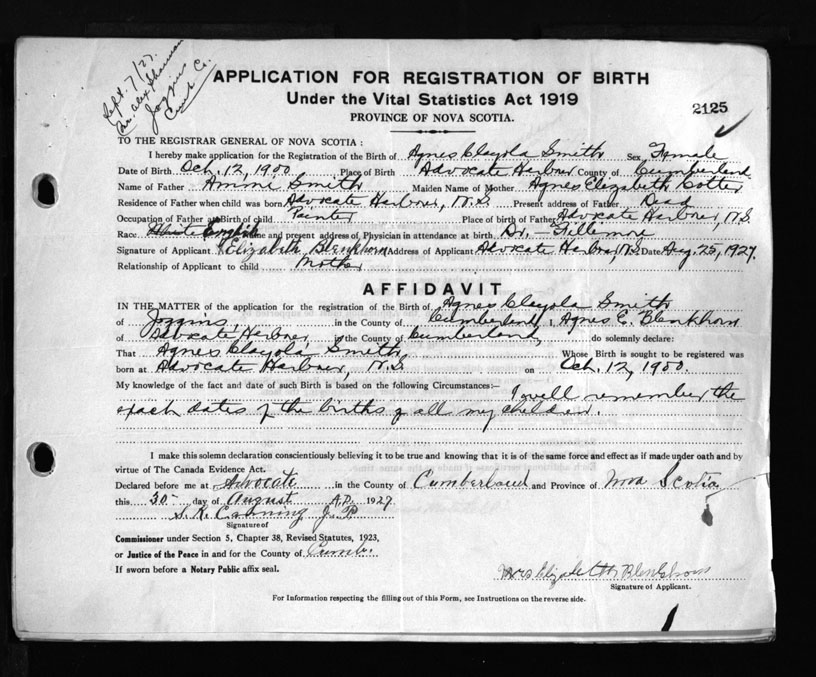 Sept. 7/27.
Joggins
Cumb Co.
APPLICATION FOR REGISTRATION OF BIRTH
Under the Vital Statistics Act 1919
PROVINCE OF NOVA SCOTIA.
2125
TO THE REGISTRAR GENERAL OF NOVA SCOTIA:
I hereby make application for the Registration of the Birth of Agnes Clayola Smith Sex Female
Date of Birth Oct. 12, 1900 Place of Birth Advocate Harbour County of Cumberland
Name of Father Ammi Smith Maiden Name of Mother Agnes Elizabeth Cotter
Residence of Father when child was born Advocate Harbour, N.S. Present address of Father Dead
Occupation of Father at Birth of child Painter Place of birth of Father Advocate Harbour, N.S.
Race English Name and present address of Physician in attendance at birth Dr. — Fillemore
Signature of Applicant Elizabeth Blenkhorn Address of Applicant Advocate Harbor, N.S. Date Aug. 25, 1927.
Relationship of Applicant to child Mother
AFFIDAVIT
IN THE MATTER of the application for the registration of the Birth of Agnes Clayola Smith
of Joggins, in the County of Cumberland, Agnes E. Blenkhorn
of Advocate Harbor, in the County of Cumberland, do solemnly declare:
That Agnes Clayola Smith, Whose Birth is sought to be registered was
born at Advocate Harbour, N.S. on Oct. 12, 1900.
My knowledge of the fact and date of such Birth is based on the following Circumstances:— I well remember the
exact dates of the births of all my children.
I make this solemn declaration conscientiously believing it to be true and knowing that it is of the same force and effect as if made under oath and by
virtue of The Canada Evidence Act.
Declared before me at Advocate in the County of Cumberland and Province of Nova Scotia
this 30 day of August A.D. 1927
S. R. Canning J. P.
Signature of
Commissioner under Section 5, Chapter 38, Revised Statutes, 1923,
or Justice of the Peace in and for the County of Cumb.
If sworn before a Notary Public affix seal.
Mrs Elizabeth Blenkhorn
Signature of Applicant.
For Information respecting the filling out of this Form, see Instructions on the reverse side.